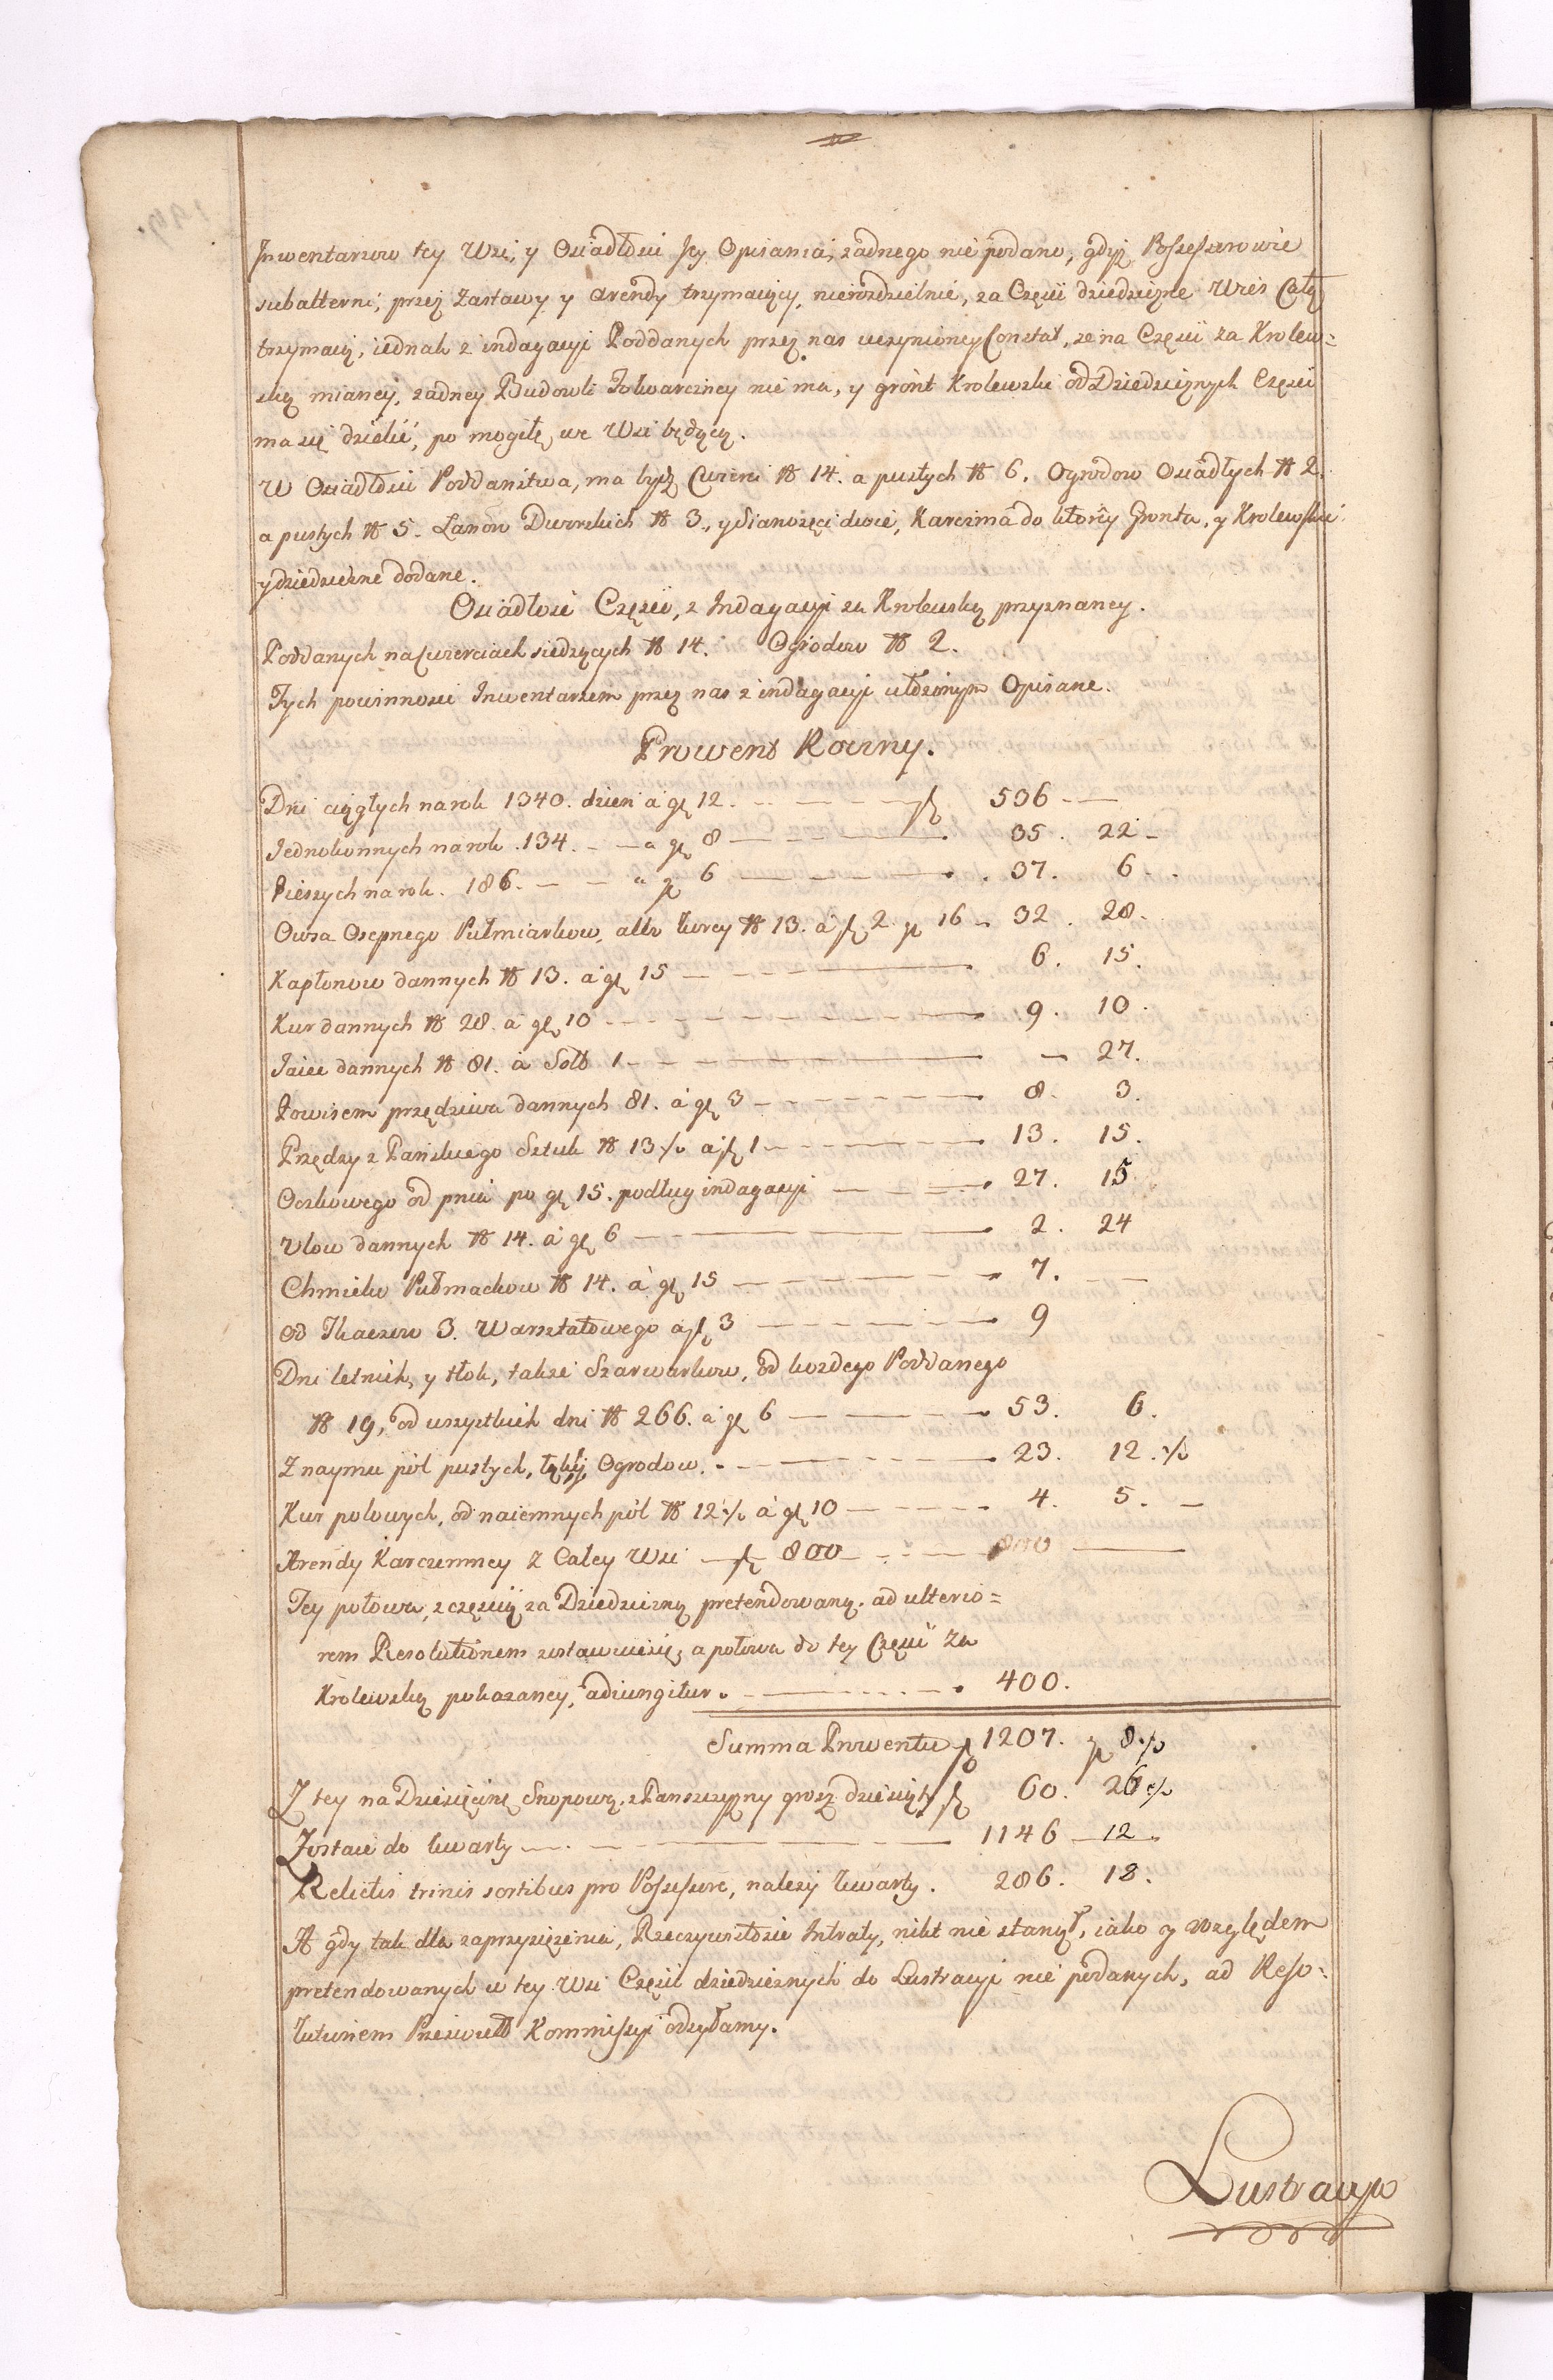 Inwentarzow tey Wsi, y Osiadłości jey Opisania, żadnego nie podano, gdyż Possessorowie
subalterni, przez zastawy y arendy trzymaiący, nierozdzielnie, za Części dziedziczne Wieś Całą
trzymaią, iednak z indagacyi Poddanych przez nas uczynioney Constat, że na Części za Krolew=
ską mianey, żadney Budowli Folwarczney nie ma, y grónt Krolewski od Dziedzicznych Części
ma się dzielić, po mogiłę we Wsi będącą.
W Osiadłości Poddaństwa, ma bydź Cwierci № 14. a pustych № 6. Ogrodow Osiadłych № 2.
a pustych № 5. Łanów Dworskich № 3., y Sianożęci dwie, Karczma do ktorey Gronta, y Krolewskie
y dziedziczne dodane.
Osiadłość Części, z Indagacyi za Krolewską przyznaney.
Poddanych na Cwierciach siedzących № 14. Ogrodow № 2.
Tych powinności Inwentarzem przez nas z indagacyi ułożonym Opisane.
Prowent Roczny.
Dni ciągłych na rok 1340. dzień à gł 12. fl 536 —
Jednokonnych na rok. 134. — à gł 8 — 35. 22 —
Pieszych na rok. 186. — à gł 6 — 37. 6
Owsa Osepnego Pułmiarkow, albo korcy № 13. à fl 2 gł 16 — 32. 28.
Kapłonow dannych № 13. à gł 15 — 6. 15.
Kur dannych № 28. à gł 10 — 9. 10.
Jaiec dannych № 81. à Sold 1 — — 27.
Powisem przędziwa dannych 81. à gł 3 — 8. 3.
Przędzy z Pańskiego Sztuk № 13 ½ à fl 1 — 13. 15.
Oczkowego od pnia po gł 15. podług indagacyi — 27. 15
Ulow dannych № 14. à gł 6 — 2. 24
Chmielu Pułmackow № 14. à gł 15 — 7. —
Od Tkaczow 3. Warsztatowego à fl 3 — 9
Dni letnich, y tłok, także Szarwarkow, od każdego Poddanego
№ 19, od wszystkich dni № 266. à gł 6 — 53. 6.
Z naymu pól pustych, łąk, y Ogrodow. — 23. 12. ½
Kur polowych, od naiemnych pól № 12 ½ à gł 10 — 4. 5. —
Arendy Karczemney z Całey Wsi — fl 800 — 800 —
Tey połowa, z częścią za Dziedziczną pretendowaną. ad ulterio=
rem Resolutionem zostawuie się, a połowa do tey Części za
Krolewską pokazaney, adiungitur. — 400.
Summa Prowentu fl 1207. gł 8 ½
Z tey na Dziesięcinę Snopową, z Panszczyzny grosz dziesiąty fl 60. 26 ½
Zostaie do kwarty — 1146 — 12.
Relictis trinis sortibus pro Possessore, należy kwarty. 286. 18.
A gdy tak dla zaprzysiężenia, Rzeczywistości Intraty, nikt nie stanął, iako y względem
pretendowanych w tey Wsi Części dziedzicznych do Lustracyi nie podanych, ad Reso=
lutionem Prześwietł Kommissyi odsyłamy.
Lustracya